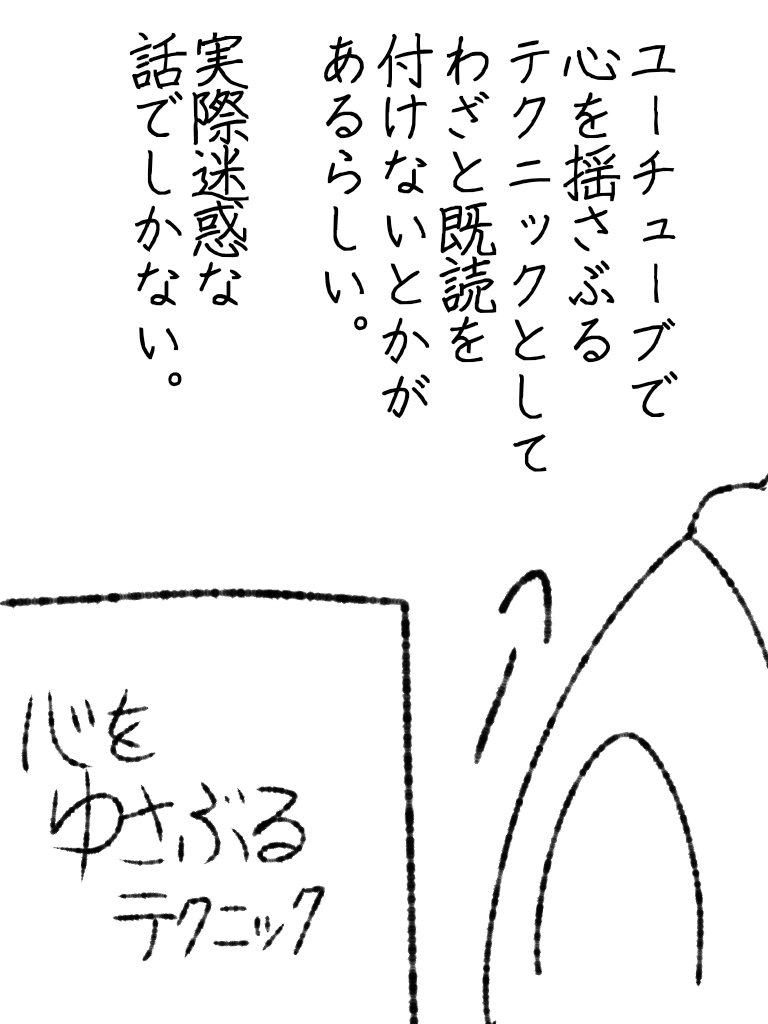 ユーチューブで
心を揺さぶる
テクニックとして
わざと既読を
付けないとかが
あるらしい。
実際迷惑な
話でしかない。
心を
ゆさぶる
テクニック